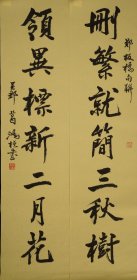 鄭板橋句聯
刪繁就簡三秋樹
領異標新二月花
葛鴻楨書